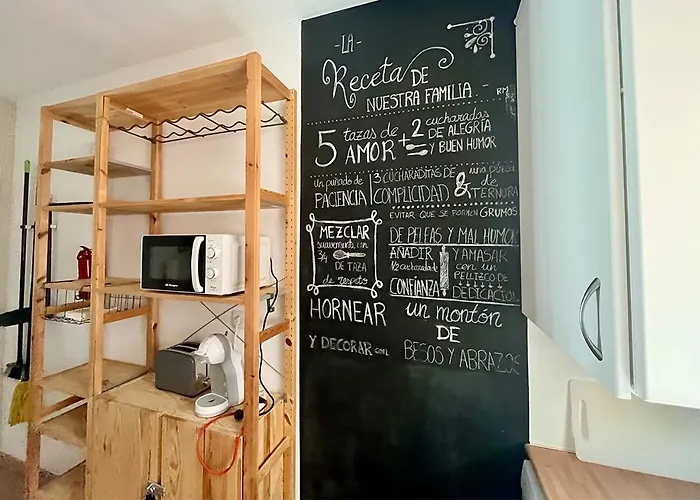 -LA-
Receta DE
NUESTRA FAMILIA.-
RM
5 tazas de AMOR + 2 cucharadas DE ALEGRÍA Y BUEN HUMOR
un puñado de PACIENCIA
3 CUCHARADITAS DE COMPLICIDAD & una pizca de TERNURA
EVITAR QUE SE FORMEN GRUMOS
DE PELEAS Y MAL HUMOR
MEZCLAR
suavemente con
3/4 DE TAZA
de respeto
AÑADIR
1/2 cucharada de
CONFIANZA
Y AMASAR
CON UN
PELLIZCO DE
DEDICACIÓN
HORNEAR un montón
DE
Y DECORAR con BESOS Y ABRAZOS